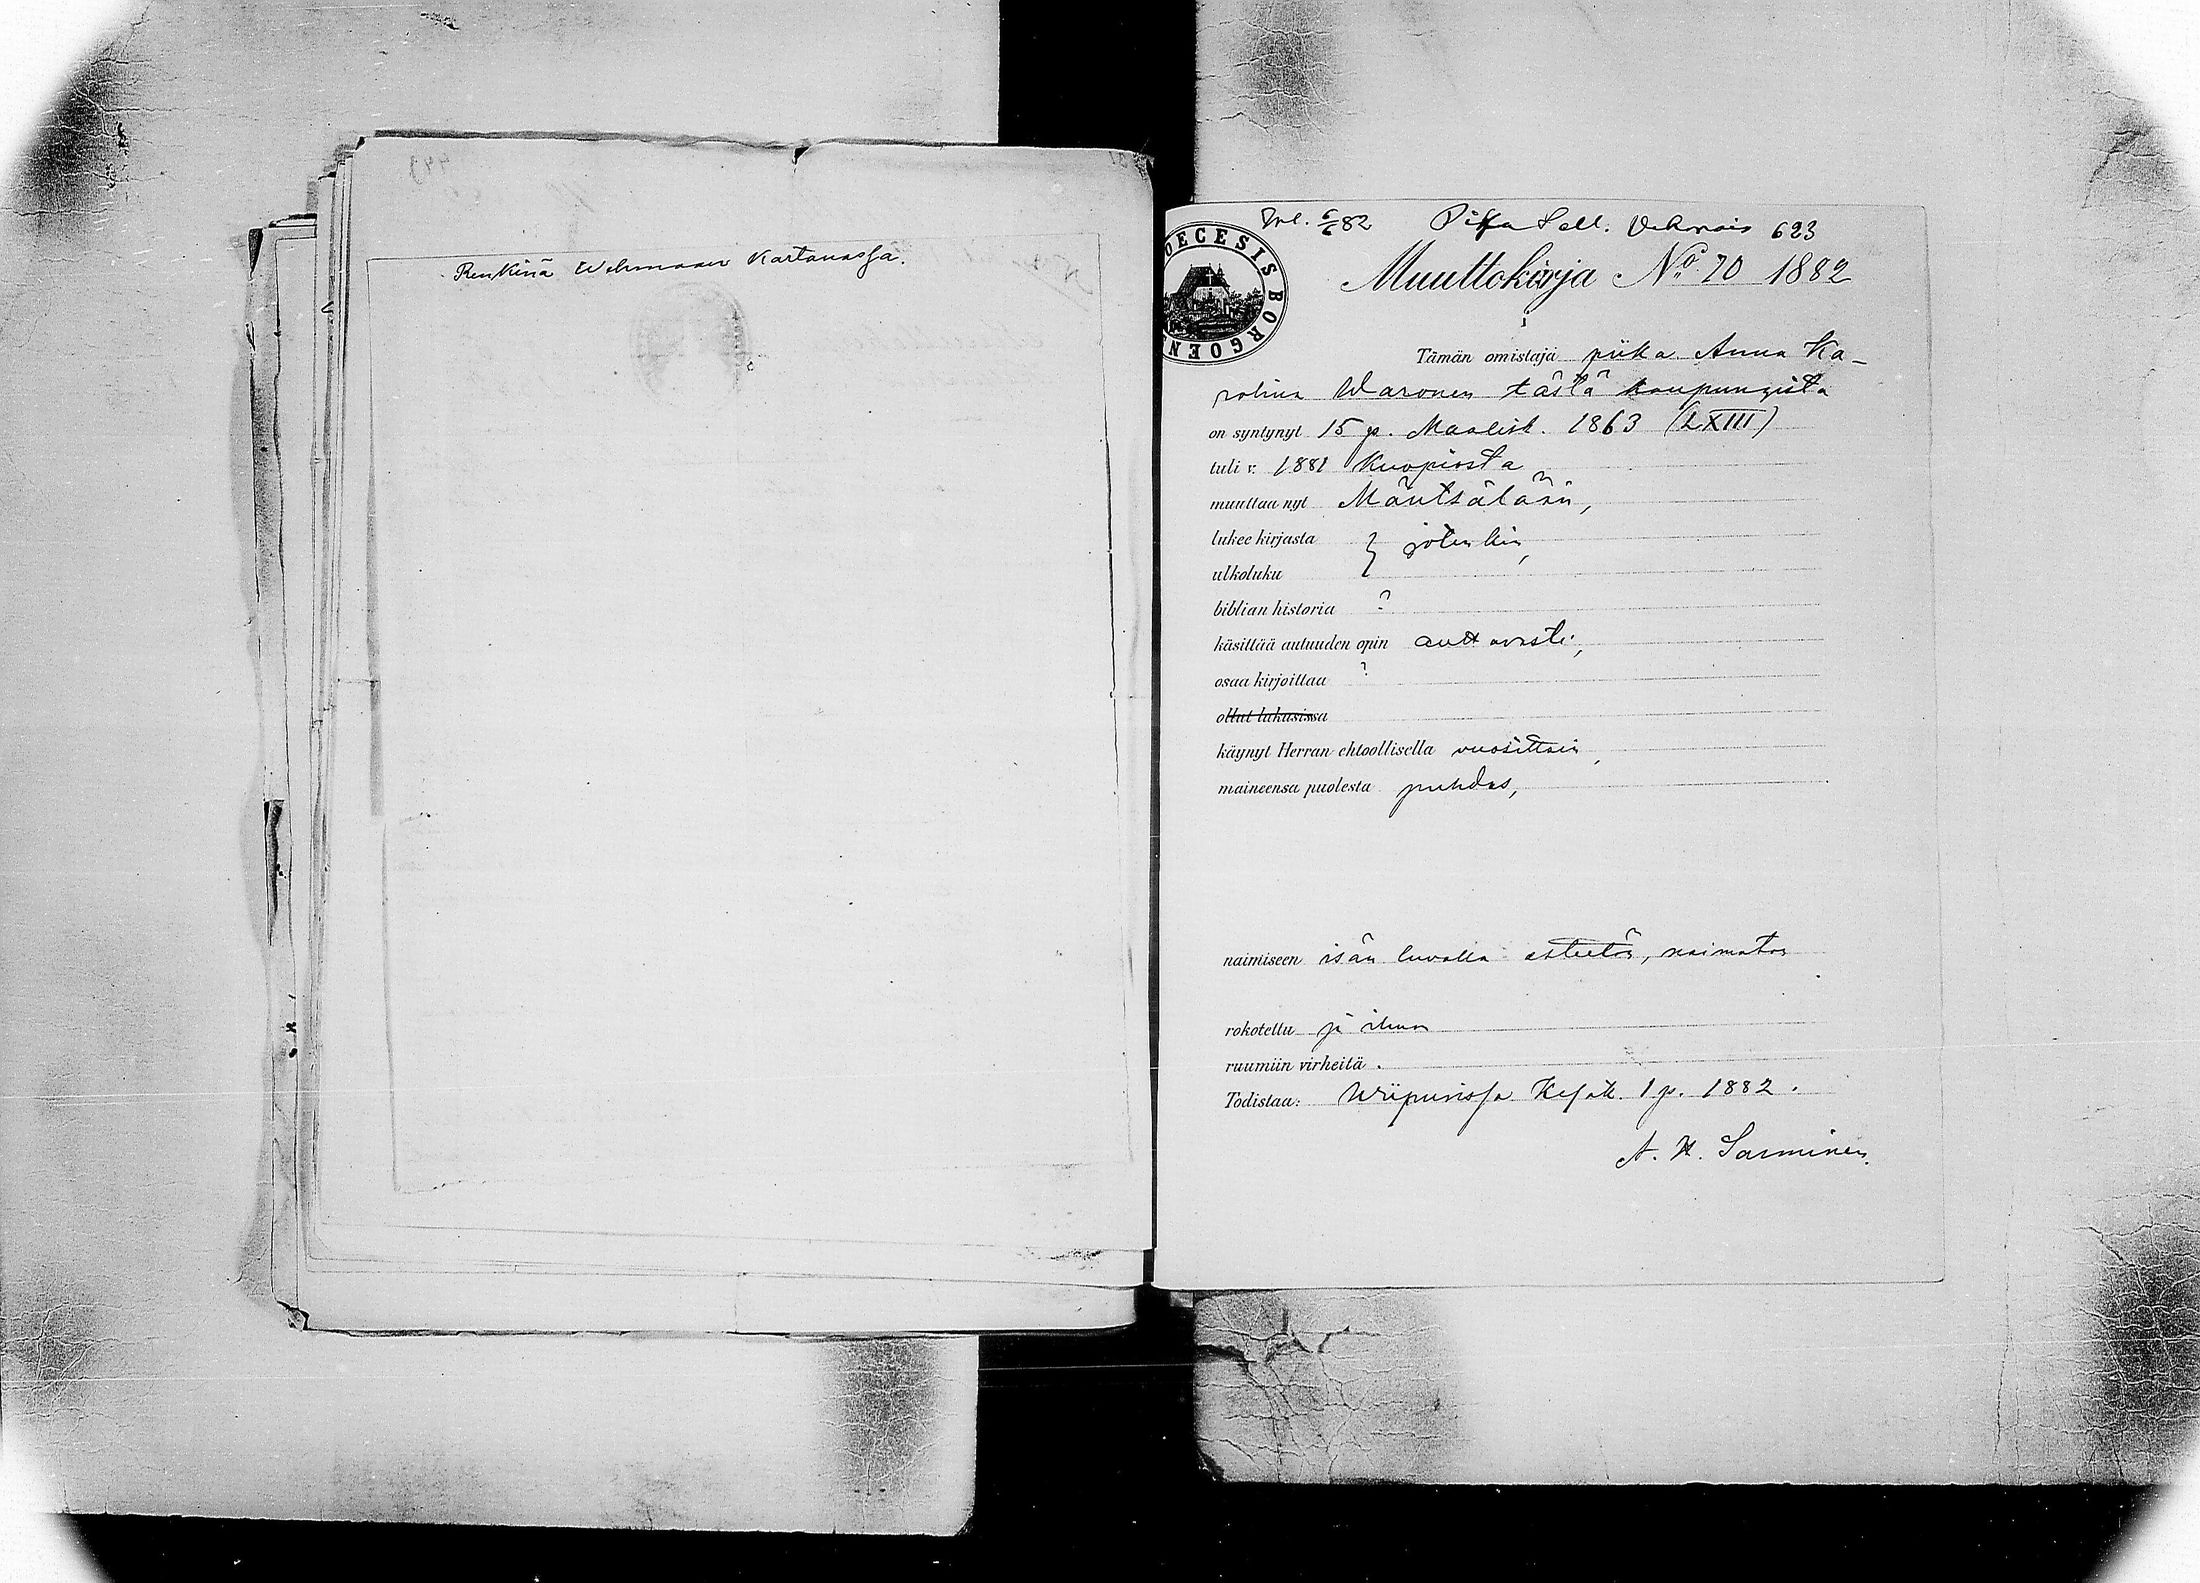 Renkinä Wehmaan Kartanossa.
Inl. 6/6 82 Piga Sell. Vehmais 623
DIOECESIS BORGOENSIS
Muuttokirja No. 70 1882
Tämän omistaja piika Anna Ka-
rolina Waronen tästä kaupungista
on syntynyt 15 p. Maalisk. 1863 (LXIII)
tuli v: 1881 Kuopiosta
muuttaa nyt Mäntsälään,
lukee kirjasta } jotenkin,
ulkoluku
biblian historia ?
käsittää autuuden opin auttavasti,
osaa kirjoittaa ?
ollut lukusissa
käynyt Herran ehtoollisella vuosittain,
maineensa puolesta puhdas,
naimiseen isän luvalla esteetön, naimaton
rokotettu ja ilman
ruumiin virheitä.
Todistaa: Wiipurissa Kesäk. 1 p. 1882.
A. W. Sarminen.